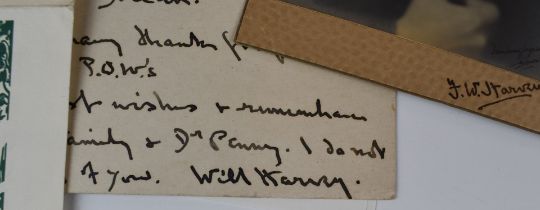 many thanks for
P.O.W's
st wishes & remembran
amily & Dr Penny. I do not
of you. Will Harvey.
F. W. Harvey